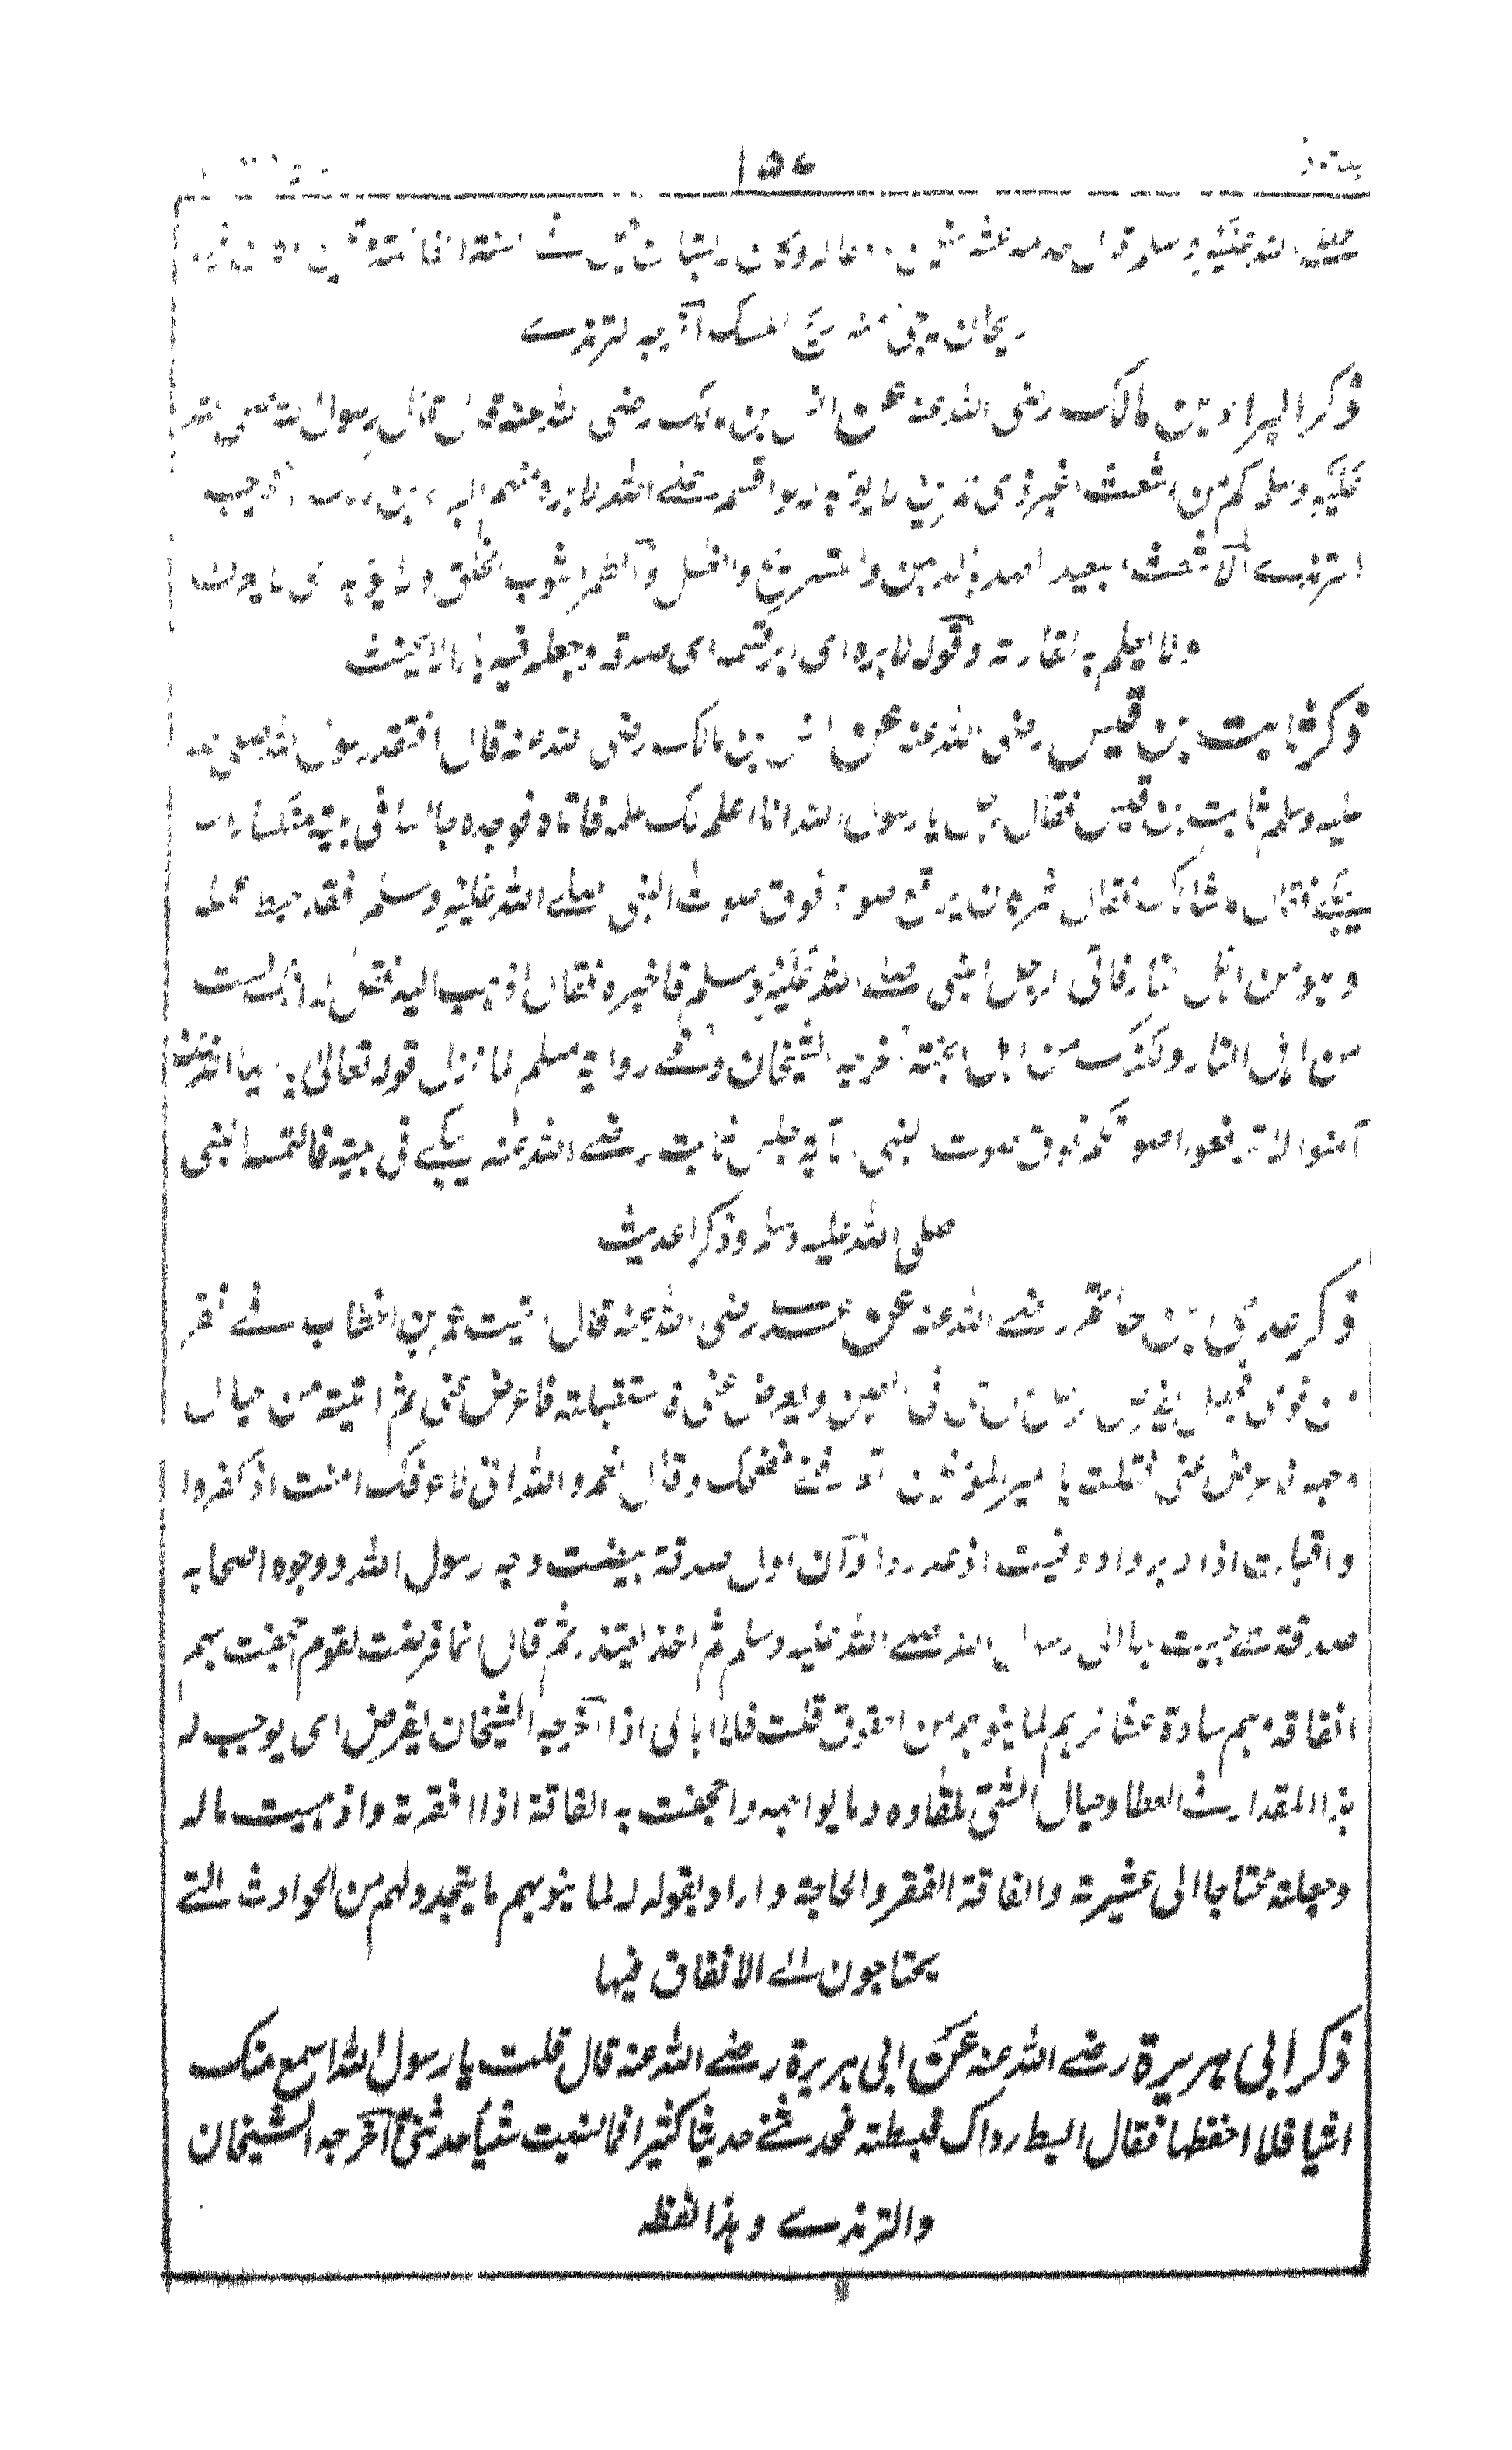 ١٥٧
صلى الله عليه وسلم
ريحان يجئ منه ريح المسك اخرجه الترمذے
ذكر البراء بن مالك رضى الله عنه عن انس بن مالك رضى الله عنه قال قال رسول الله صلى الله
عليه وسلم كم من اشعث اغبر ذى طمرين لا يؤبه له لو اقسم على الله لابره منهم البراء بن مالك اخرجه
الترمذے الاشعث البعيد العهد بالدهن والتسريح والغسل والطمر الثوب الخلق ولا يؤبه اى لا يعرف
ولا يعلم به لحقارته وقوله لابره اى ابر قسمه اى صدقه وجعله فيه بارا لا يحنث
ذكر ثابت بن قيس رضى الله عنه عن انس بن مالك رضى الله عنه قال افتقد رسول الله صلى الله
عليه وسلم ثابت بن قيس فقال رجل يا رسول الله انا اعلم لك علمه فاتاه فوجده جالسا فى بيته منكسا راسه
يبكے فقال ما شانك فقال شر كان يرفع صوته فوق صوت النبى صلے الله عليه وسلم فقد حبط عمله
وهو من اهل النار فاتى الرجل النبى صلے الله عليه وسلم فاخبره فقال اذهب اليه فقل له انك لست
من اهل النار ولكنك من اهل الجنة اخرجه الشيخان وفے رواية مسلم لما نزل قوله تعالى يا ايها الذين
آمنوا لا ترفعوا اصواتكم فوق صوت النبى الآية جلس ثابت رضے الله عنه يبكے فى بيته فالتمسه النبى
صلى الله عليه وسلم وذكر الحديث
ذكر عدى بن حاتم رضے الله عنه عن عدى رضى الله عنه قال اتيت عمر بن الخطاب فے نفر
من قومى فجعل يفرض للرجل من طى فى الفين ويعرض عنى فاستقبلته فاعرض عنى ثم اتيته من حيال
وجهه فاعرض عنى فقلت يا امير المؤمنين اتعرفنے فضحك وقال نعم والله انى لاعرفك امنت اذ كفروا
واقبلت اذا دبروا ووفيت اذ غدروا وآن اول صدقة بيضت وجه رسول الله ووجوه اصحابه
صدقة طے جيت بها الى رسول الله صلے الله عليه وسلم ثم اخذ يعتذر ثم قال انما فرضت لقوم اجحفت بهم
الفاقة وهم سادة عشائرهم لما ينوبهم من الحقوق قلت فلا ابالى اذا اخرجه الشيخان يفرض اى يوجب له
هذا المقدار من العطا وحيال الشئ تلقاوه وما يواجهه واجحفت به الفاقة اذا افقرته واذهبت ماله
وجعلته محتاجا الى عشيرته والفاقة الفقر والحاجة واراد بقوله لما ينوبهم ما يتجدد لهم من الحوادث التے
يحتاجون الے الانفاق فيها
ذكر ابى هريرة رضے الله عنه عن ابى هريرة رضے الله عنه قال قلت يا رسول الله اسمع منك
اشيا فلا احفظها فقال ابسط رداك فبسطته فحدثنے حديثا كثيرا فما نسيت شيأ حدثنى اخرجه الشيخان
والترمذے وهذا لفظه